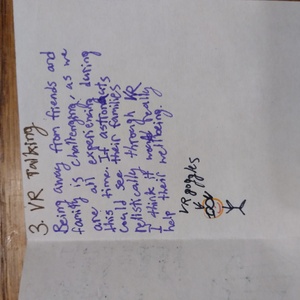 3. VR Talking
Being away from friends and
family is challenging, as we
are all experiencing during
this time. If astronauts
could see their families
relistically through VR
I think it would really
help their wellbeing.
VR goggles